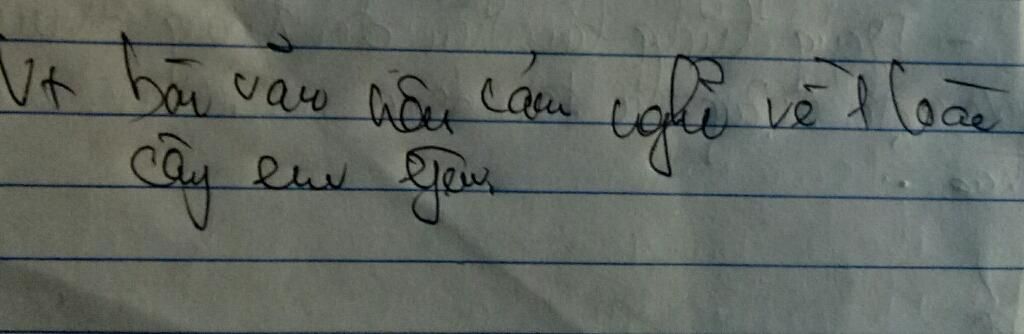 Vt bài văn nêu cảm nghĩ về 1 loài
cây em